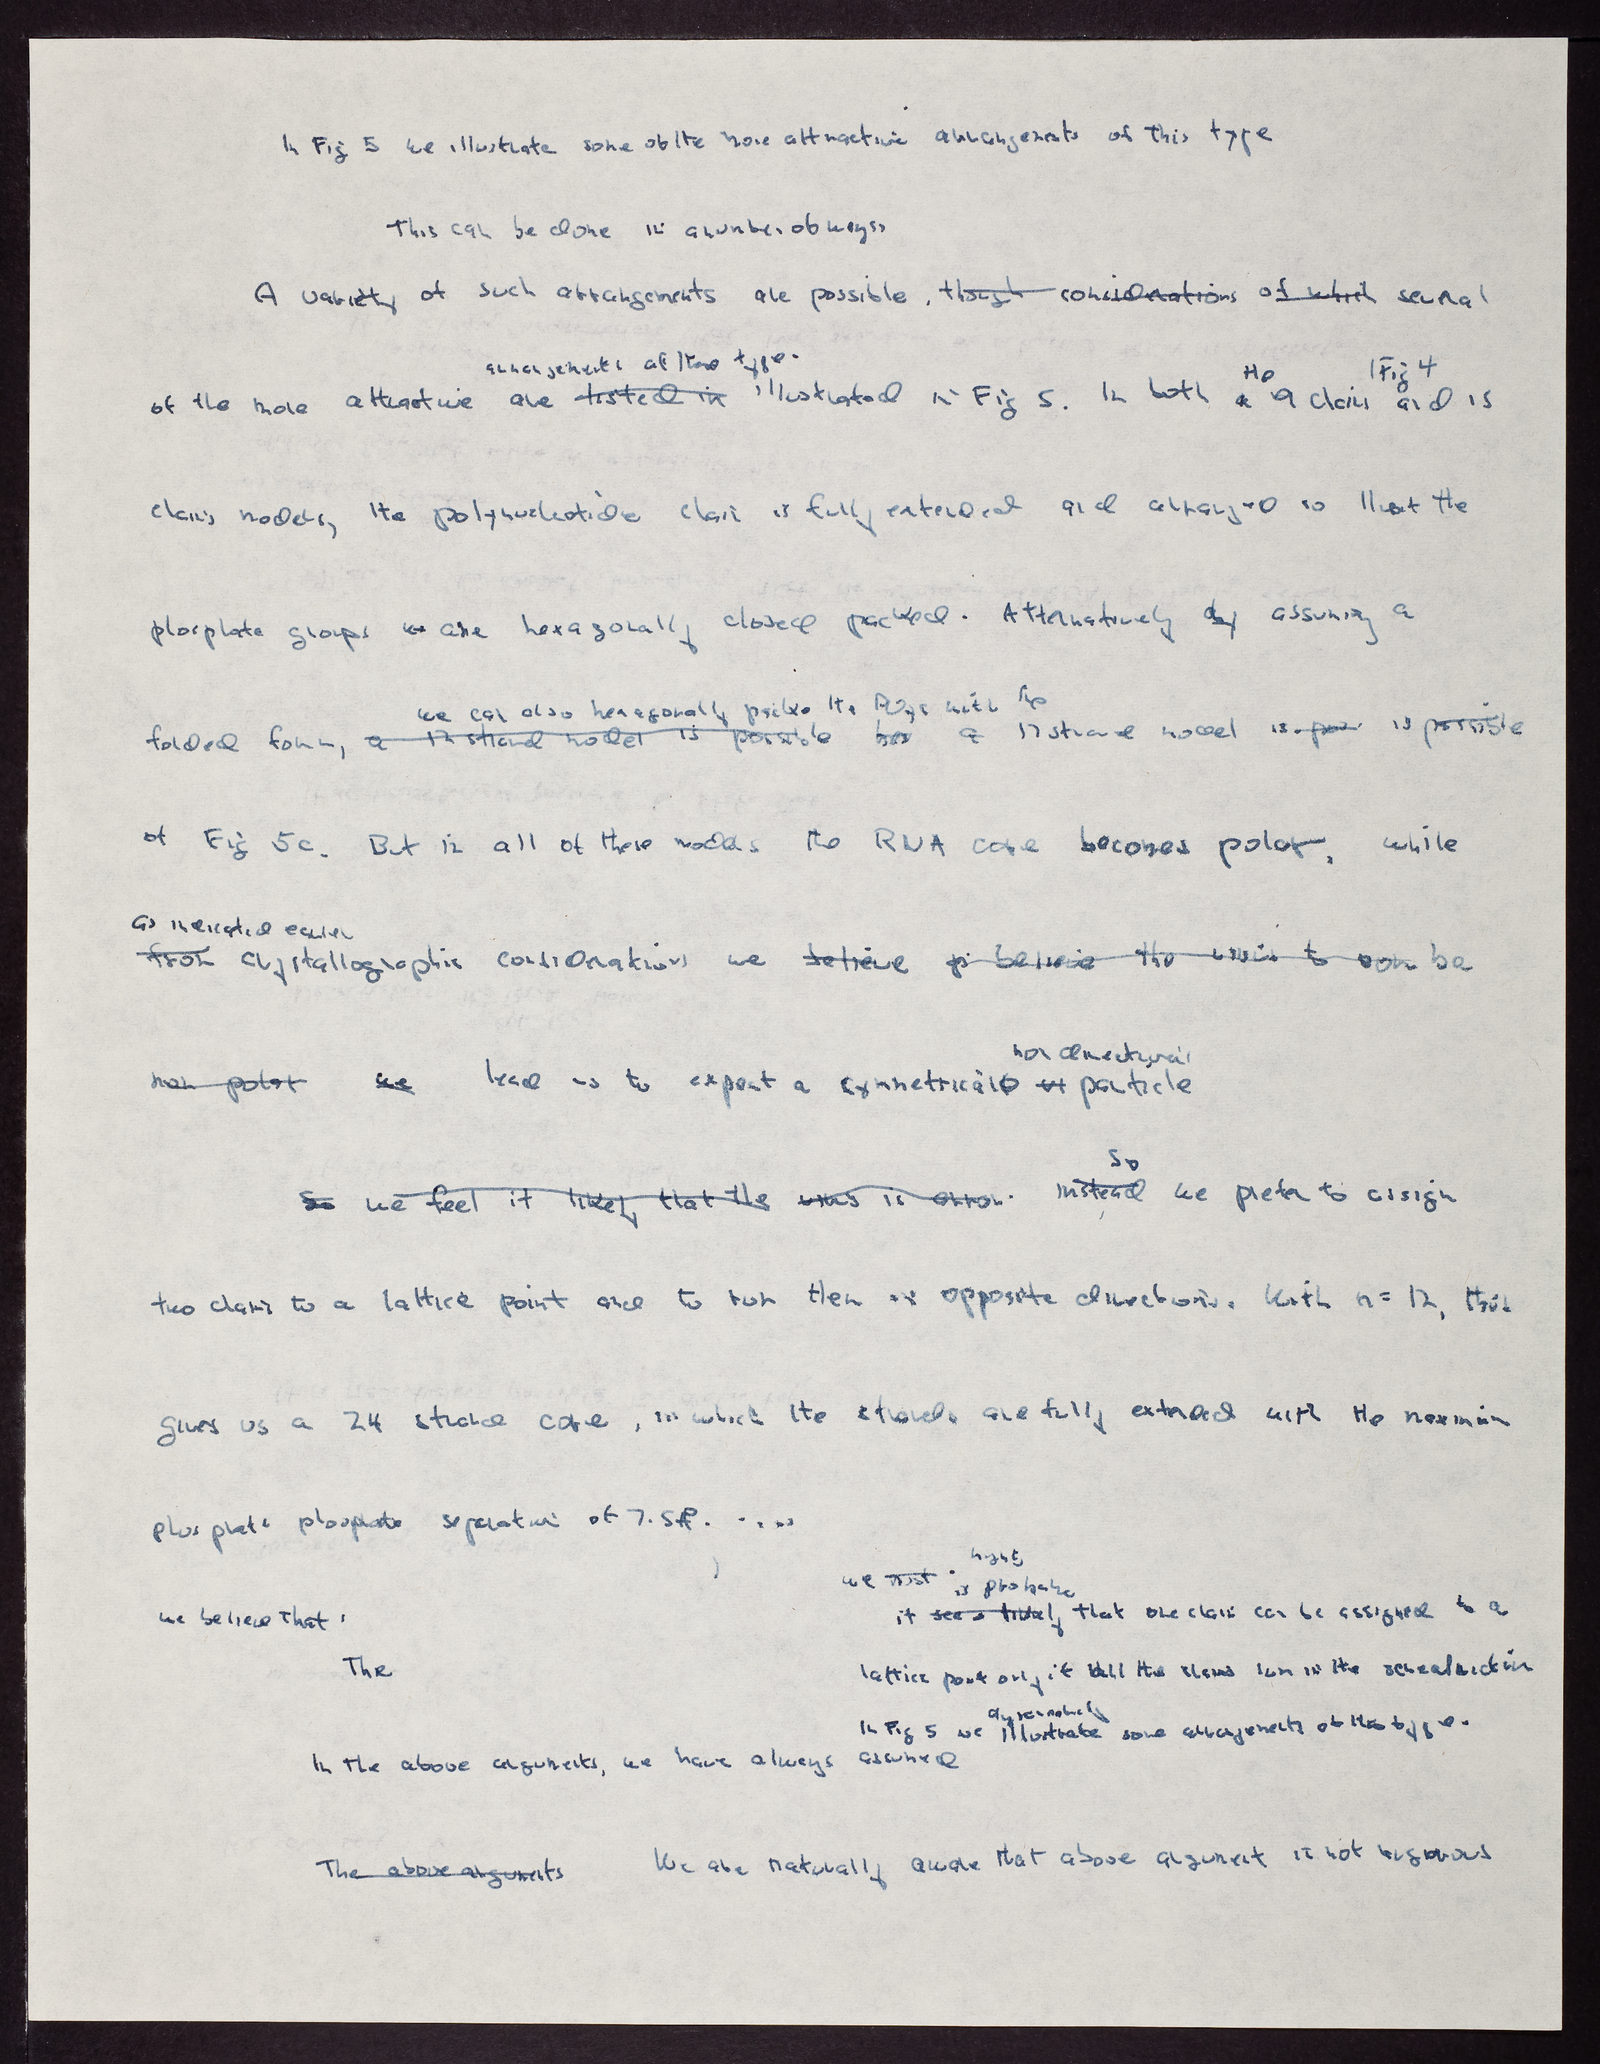 In Fig 5 we illustrate some of the more attractive arrangements of this type
This can be done in a number of ways
A variety of such arrangements are possible, though considerations of which several
arrangements of this type.
of the more attractive are listed in illustrated in Fig 5. In both the 9 chain and 15 (Fig 4
chains models, the polynucleotide chain is fully extended and arranged so that the
phosphate groups are hexagonally closed packed. Alternatively by assuming a
we can also hexagonally pack the PO4s with the
folded form, a 12 strand model is possible a 12 strand model is is possible
of Fig 5c. But in all of these models the RNA core becomes polar, while
as indicated earlier
from crystallographic considerations we believe believe the virus to be
non polar we lead us to expect a symmetrical particle
non directional
So
So we feel it likely that the virus is Instead we prefer to assign
two chains to a lattice point and to run them in opposite directions. With n = 12, this
gives us a 24 strand core, in which the strands are fully extended with the maximum
phosphate phosphate separation of 7.5Å. ....
we highly
is probable
we believe that it seems likely that one chain can be assigned to a
The lattice point only if all the chains run in the same direction
In Fig 5 we illustrate some arrangements of this type.
In the above arguments, we have always assumed
The above arguments We are naturally aware that above argument is not rigorous